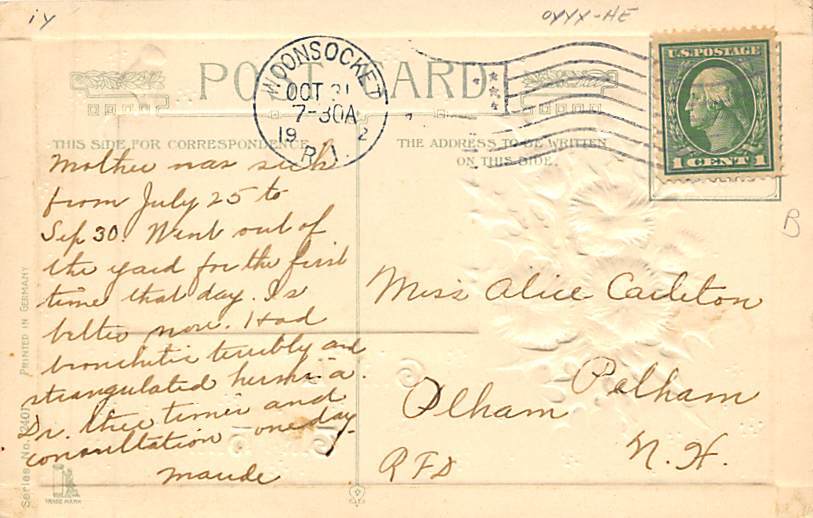 iy
OYYX-HE
POST CARD
WOONSOCKET
OCT 21
7-30A
19 2
R.I.
U.S. POSTAGE
1 CENT 1
THIS SIDE FOR CORRESPONDENCE
THE ADDRESS TO BE WRITTEN
ON THIS SIDE.
Mother was sick
from July 25 to
Sep 30. Went out of
the yard for the first
time that day. Is
better now. Had
bronchitis terribly and
strangulated hernia.
Dr. three times and
consultation one day.
Maude
Miss Alice Carleton
Pelham
Pelham
N.H.
RFD
B
PRINTED IN GERMANY
Series No. 2401
TRADE MARK